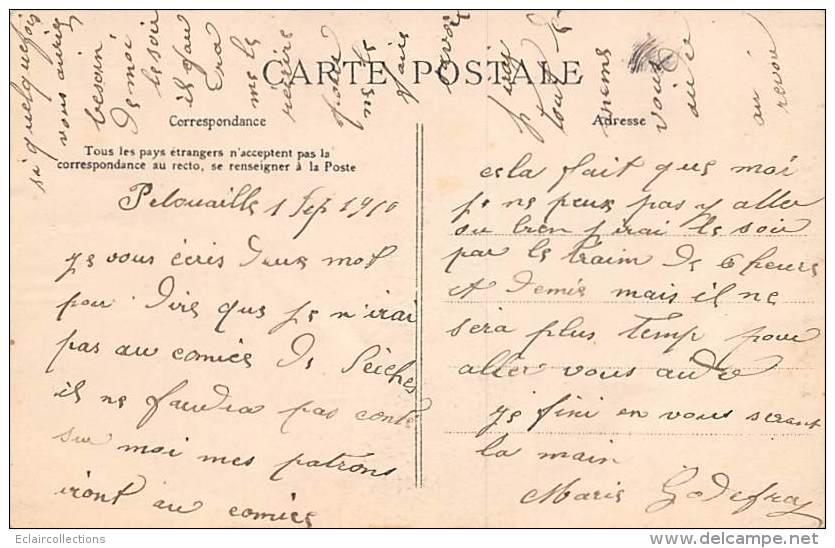 CARTE POSTALE
Correspondance
Adresse
Tous les pays étrangers n'acceptent pas la
correspondance au recto, se renseigner à la Poste
Pelouailles 1 Sep 1910
je vous écris deux mot
pour dire que je n'irai
pas au comice de Seiches
il ne faudra pas conté
sur moi mes patrons
iront au comice
cela fait que moi
je ne peux pas y aller
ou bien j'irai le soir
par le traim de 6 heure
et demie mais il ne
sera plus temp pour
aller vous aidé
je fini en vous serant
la main
Marie Godefroy
si quelquefois
vous auriez
besoin
de moi
le soir
il faudra
me le
réécrire
pour
me le
faire
savoir
au
revoir
Eclaircollections
www.delcampe.net